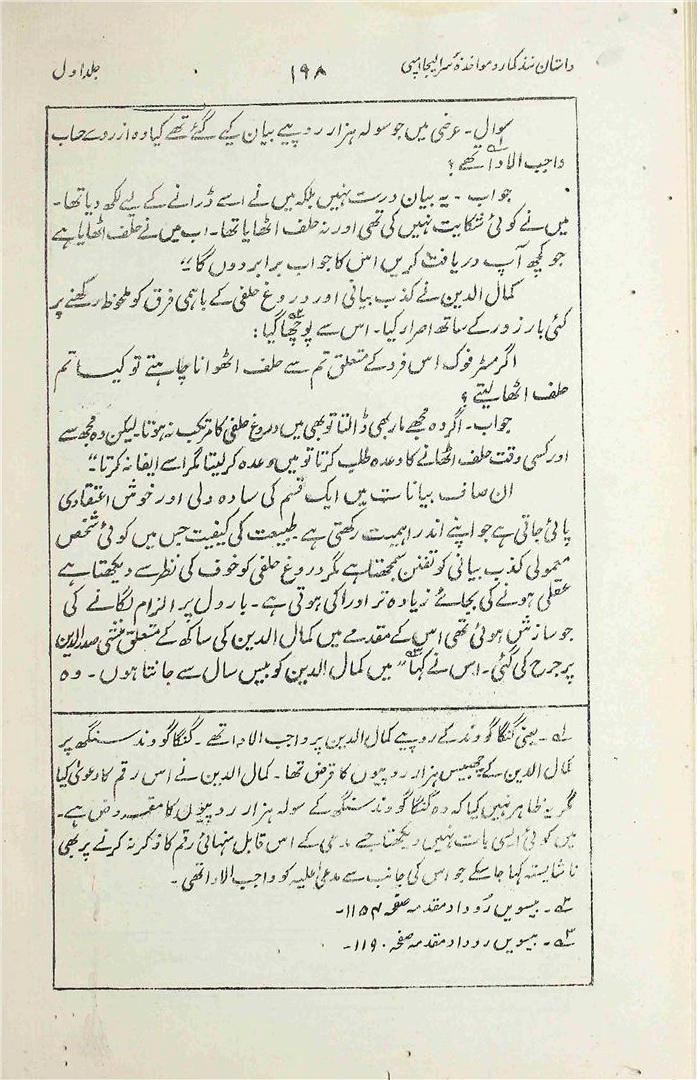 داستان نند کمار و مواخذۂ سر الیجا امپی ۱۹۸ جلد اول
سوال۔ عرضی میں جو سولہ ہزار روپیے بیان کیے گئے تھے کیا وہ از روے حساب
واجب الادا تھے لہ ؟
جواب۔ یہ بیان درست نہیں بلکہ میں نے اسے ڈرانے کے لیے لکھ دیا تھا۔
میں نے کوئی شکایت نہیں کی تھی اور نہ حلف اٹھایا تھا۔ اب میں نے حلف اٹھایا ہے
جو کچھ آپ دریافت کریں اس کا جواب برابر دوں گا"
کمال الدین نے کذب بیانی اور دروغ حلفی کے باہمی فرق کو ملحوظ رکھنے پر
کئی بار زور کے ساتھ اصرار کیا۔ اس سے پوچھا گیا ۲ہ:
اگر مسٹر فوک اس فرد کے متعلق تم سے حلف اٹھوانا چاہتے تو کیا تم
حلف اٹھا لیتے ؟
جواب۔ اگر وہ مجھے مار بھی ڈالتا تو بھی میں دروغ حلفی کا مرتکب نہ ہوتا۔ لیکن وہ مجھ سے
اور کسی وقت حلف اٹھانے کا وعدہ طلب کرتا تو میں وعدہ کر لیتا مگر اسے ایفا نہ کرتا"
ان صاف بیانات میں ایک قسم کی سادہ دلی اور خوش اعتقادی
پائی جاتی ہے جو اپنے اندر اہمیت رکھتی ہے۔ طبیعت کی کیفیت جس میں کوئی شخص
معمولی کذب بیانی کو تفنن سمجھتا ہے مگر دروغ حلفی کو خوف کی نظر سے دیکھتا ہے
عقلی ہونے کی بجائے زیادہ تر اوراکی ہوتی ہے۔ بارول پر الزام لگانے کی
جو سازش ہوئی تھی اس کے مقدمے میں کمال الدین کی ساکھ کے متعلق منشی صدر الدین
پر جرح کی گئی۔ اس نے کہا ۳ہ "میں کمال الدین کو بیس سال سے جانتا ہوں۔ وہ
لہ۔ یعنی گنگا گووند کے روپیے کمال الدین پر واجب الادا تھے۔ گنگا گووند سنگھ پر
کمال الدین کے چھبیس ہزار روپیوں کا قرض تھا۔ کمال الدین نے اس رقم کا دعویٰ کیا
مگر یہ ظاہر نہیں کیا کہ وہ گنگا گووند سنگھ کے سولہ ہزار روپیوں کا مقروض ہے۔
میں کوئی ایسی بات نہیں دیکھتا جسے مدعی کے اس قابل منہائی رقم کا ذکر نہ کرنے پر بھی
ناشایستہ کہا جا سکے جو اس کی جانب سے مدعیٰ علیہ کو واجب الادا تھی۔
۲ہ۔ بیسویں روداد مقدمہ صفحہ ۱۱۵۴۔
۳ہ۔ بیسویں روداد مقدمہ صفحہ ۱۱۹۰۔